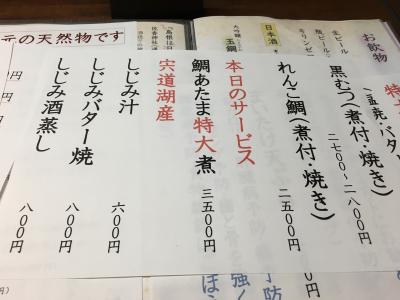 お飲物
生ビール
瓶ビール
キリンゼ
日本酒
大吟醸
玉鋼
元の天然物です
特大
黒むつ(煮付・焼き)
二七〇〇~二八〇〇円
れんこ鯛(煮付・焼き)
二五〇〇円
本日のサービス
鯛あたま特大煮
三五〇〇円
宍道湖産
しじみ汁
六〇〇円
しじみバター焼
八〇〇円
しじみ酒蒸し
八〇〇円